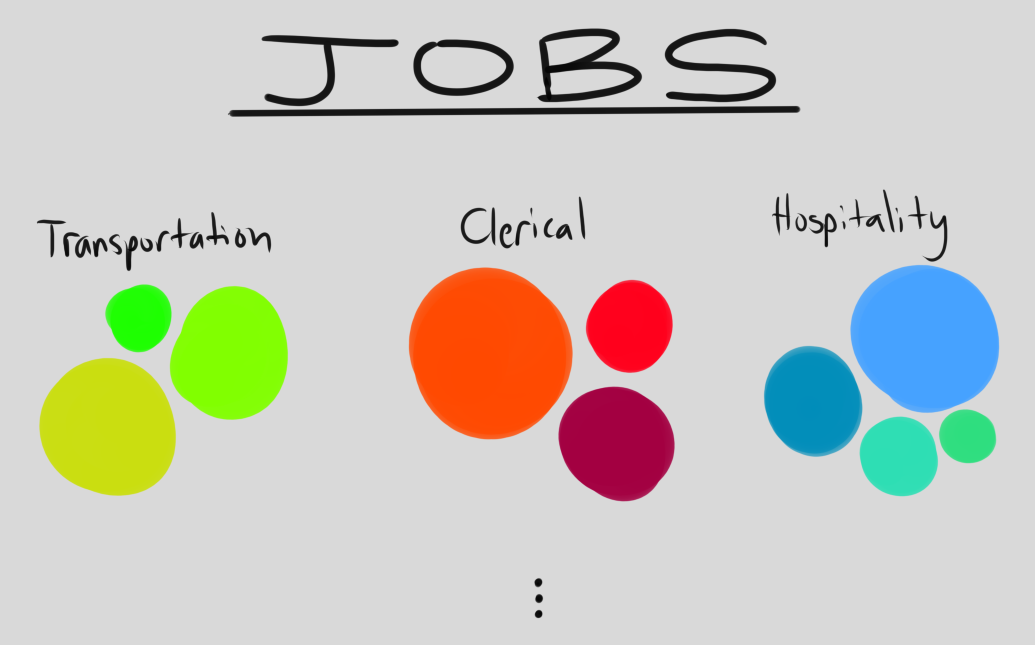 JOBS
Transportation
Clerical
Hospitality